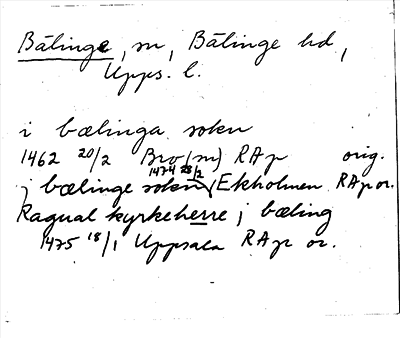 Bälinge, sn, Bälinge hd,
Upps. l.
i bælinga sokn
1462 20/2 Bro (sn) RAp orig.
1474 28/2
j bælinge sokn, Ekholmen RAp or.
Ragual kyrkeherre j bæling
1475 18/1 Uppsala RAp or.